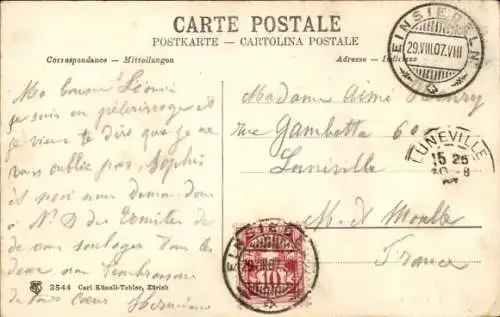 CARTE POSTALE
POSTKARTE – CARTOLINA POSTALE
Correspondance – Mitteilungen
Adresse – Indirizzo
EINSIEDELN
29.VIII.07.VIII
Ma bonne Léonie
je suis en pèlerinage et
je viens te dire que je ne
vous oublie pas Sophie
et moi nous demandons
à N. D. des Ermites de
de vous soulager tous les
deux nous t'embrassons
de tout cœur Hermine
Madame Aimé Henry
rue Gambetta 60
Lunéville
M. et Moselle
France
LUNEVILLE
15 25
30 -8
EINSIEDELN
29.VIII.07.
10
3544 Carl Künzli-Tobler, Zürich